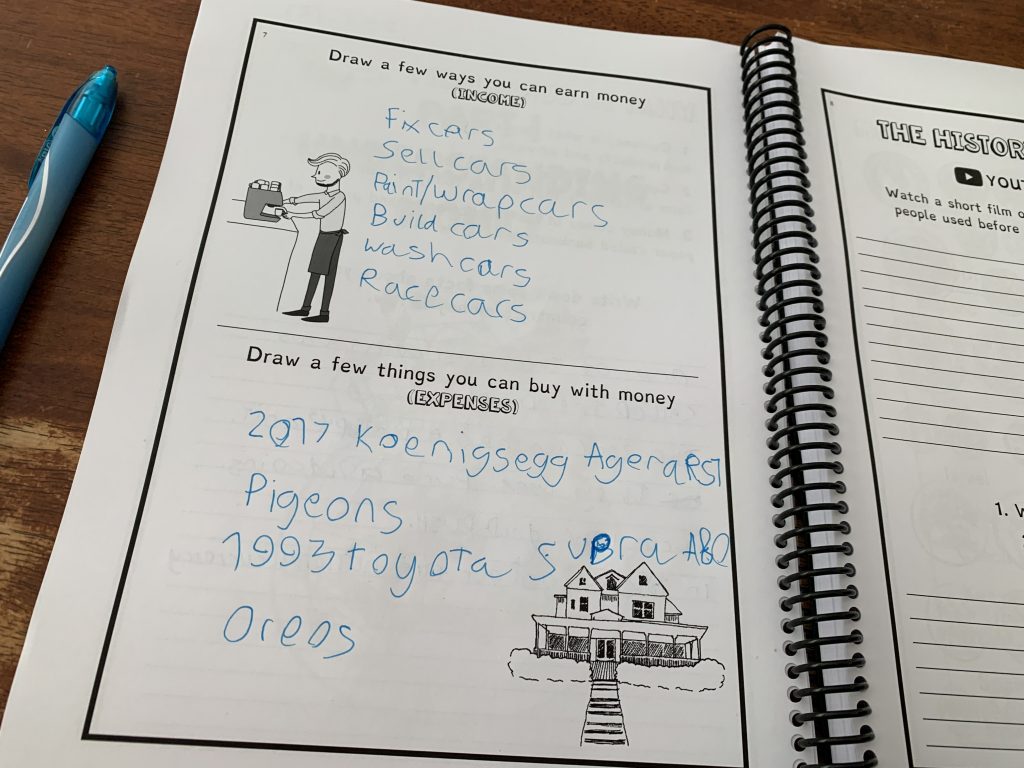 7
Draw a few ways you can earn money
(INCOME)
Fix cars
Sell cars
Paint/wrap cars
Build cars
wash cars
Race cars
Draw a few things you can buy with money
(EXPENSES)
2017 Koenigsegg Agera RST
Pigeons
1993 toyota supra
Oreos
8
THE HISTOR
YOUT
Watch a short film o
people used before
1. W